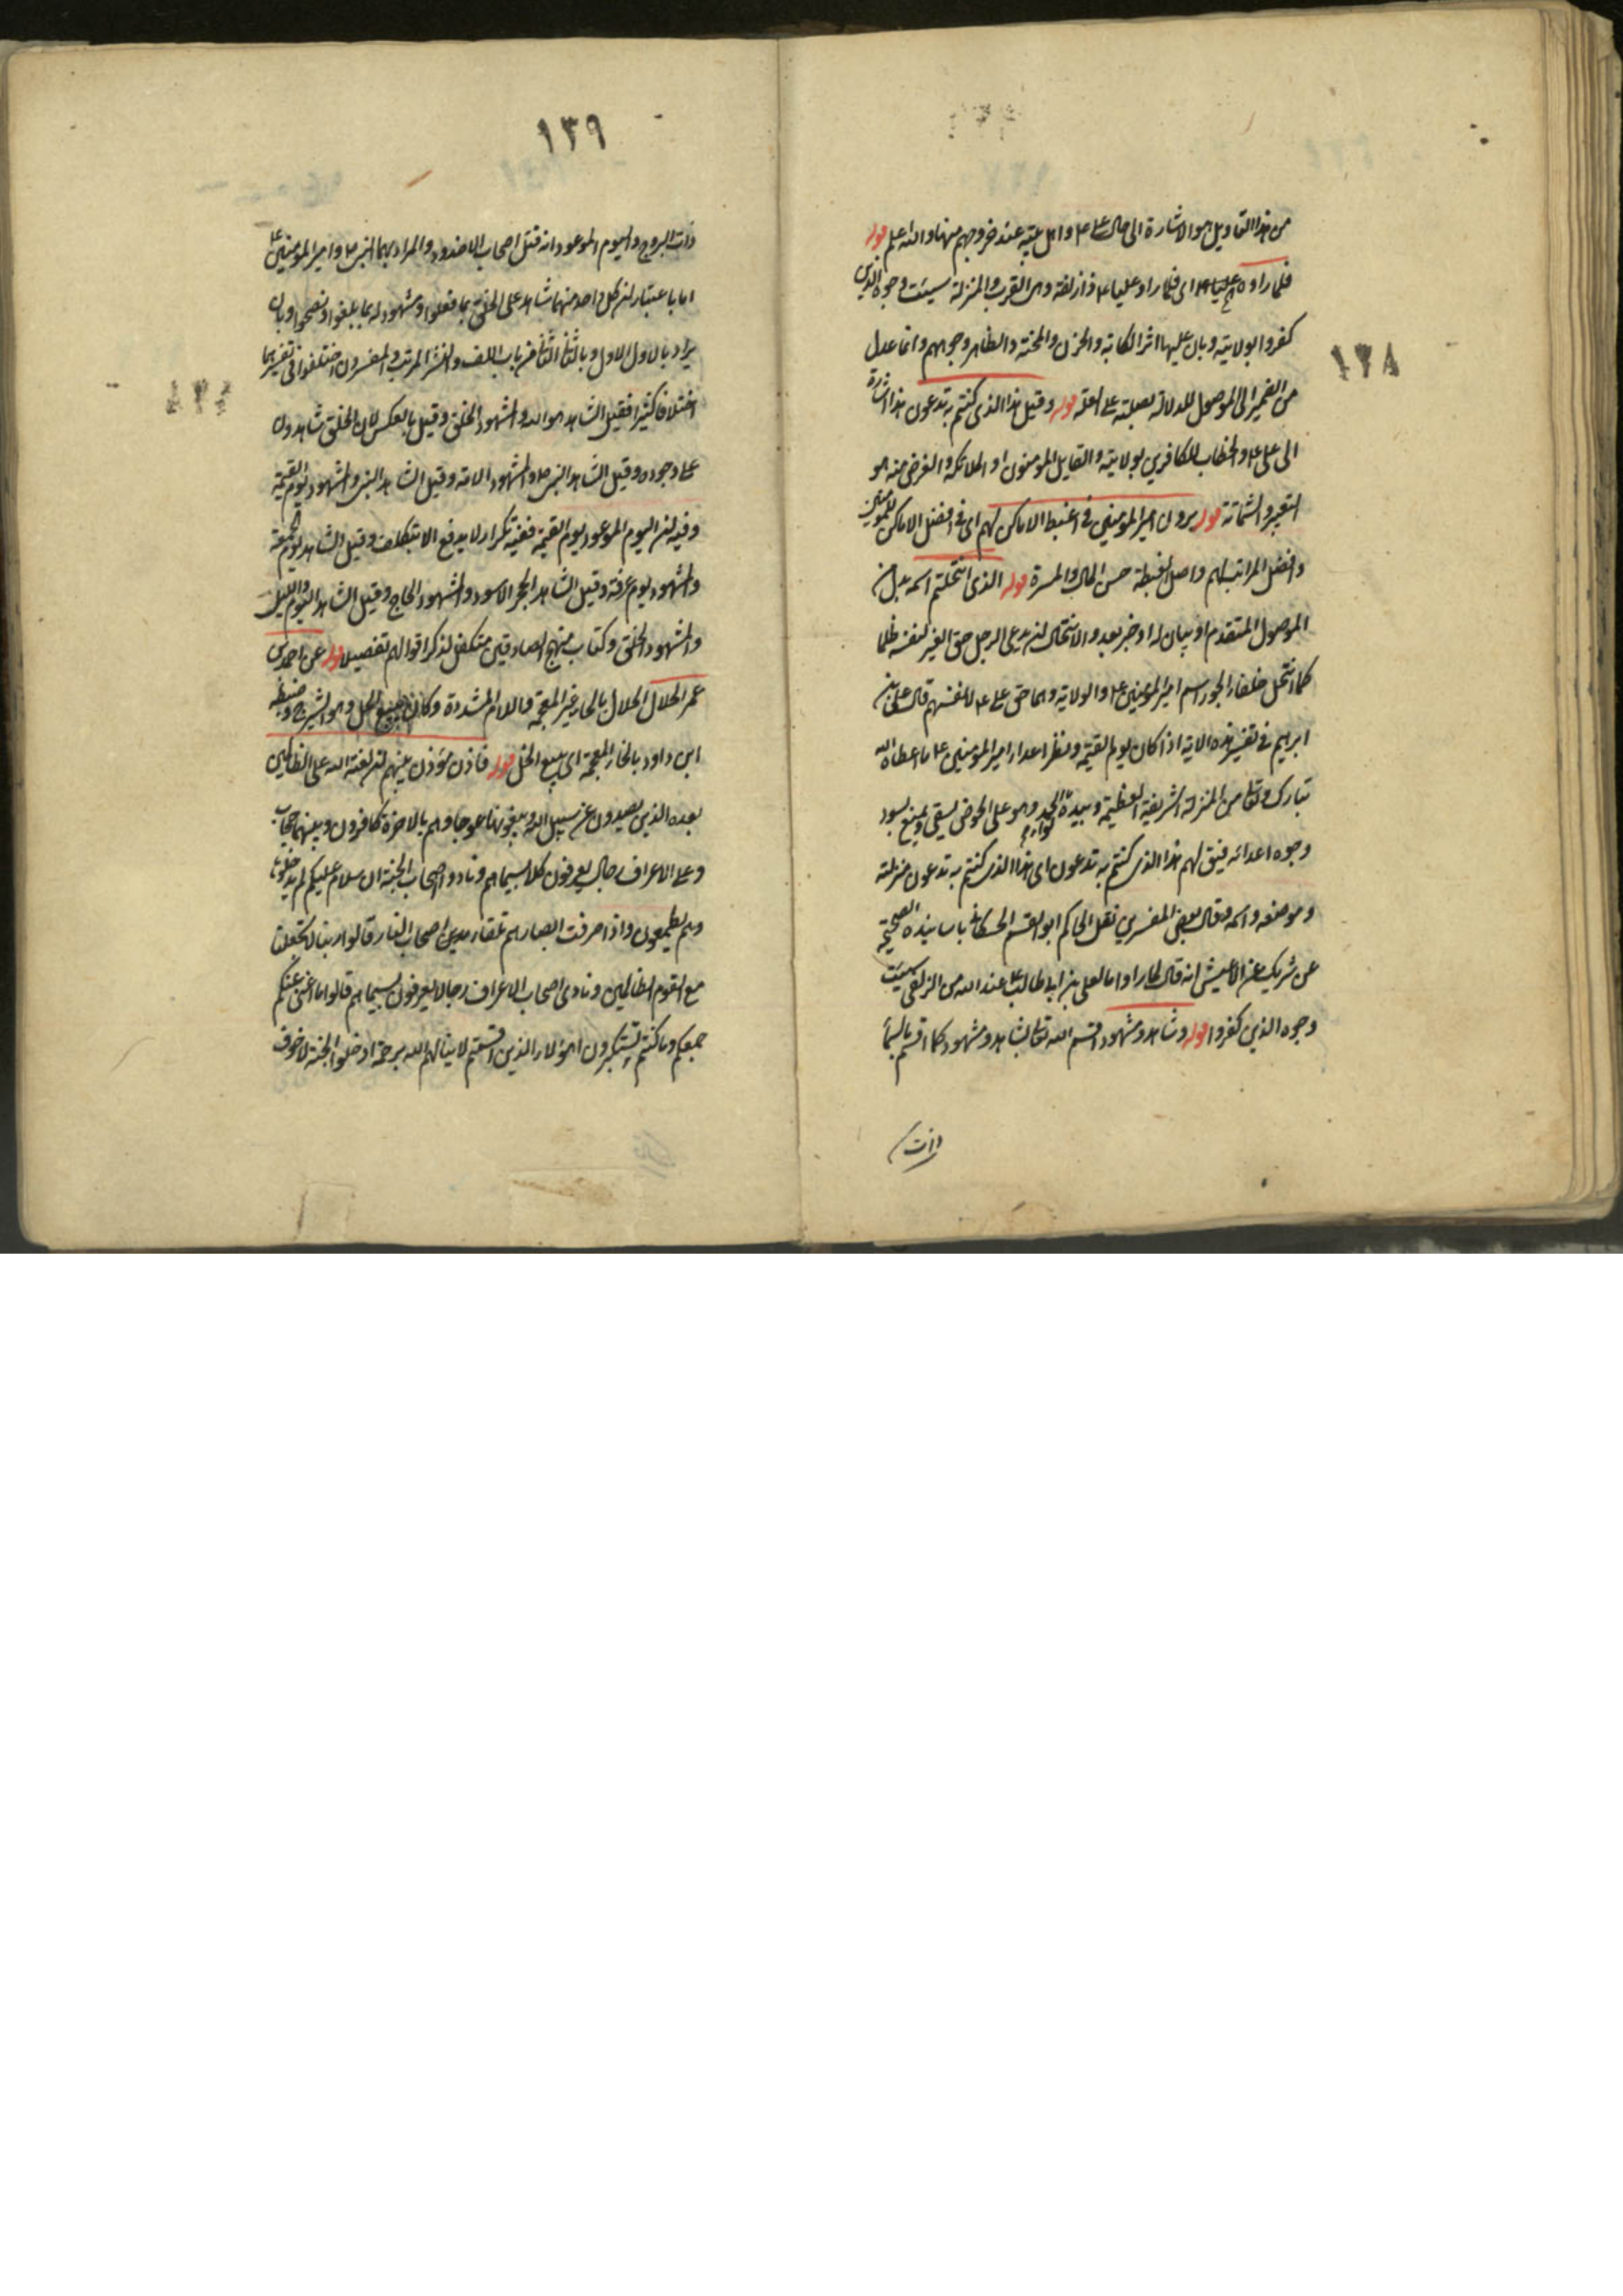 ١٣٨
من هذا التأويل هو الاشارة الى حال على ع واهل بيته عند خروجهم منها والله اعلم قوله
فلما راوه عليا ع اى فلما راو عليا ع ذا زلفة وهى القرب والمنزلة سيئت وجوه الذين
كفروا بولايته وبان عليها اثر الكابة والحزن والمحنة والظاهر وجوههم وانما عدل
من الضمير الى الموصول للدلالة بصلته على العلة قوله وقيل هذا الذى كنتم به تدعون هذا اشارة
الى على ع والخطاب للكافرين بولايته والقايل المؤمنون او الملائكة والغرض منه هو
التعيير والشماتة قوله يرون امير المؤمنين فى اغبط الاماكن لهم اى فى افضل الاماكن للمؤمنين
وافضل المراتب لهم واصل الغبطة حسن الحال والمسرة قوله الذى انتحلتم اسمه بدل من
الموصول المتقدم او بيان له او خبر بعد والانتحال ان يدعى الرجل حق الغير لنفسه ظلما
كما انتحل خلفاء الجور اسم امير المؤمنين ع والولاية وهما حق على ع لانفسهم قال على بن
ابرهيم فى تفسير هذه الاية اذا كان يوم القيمة ونظر اعداء امير المؤمنين ع ما اعطاه الله
تبارك وتعالى من المنزلة الشريفة العظيمة وبيده لواء الحمد وهو على الحوض يسقى ويمنع يسود
وجوه اعدائه فيق لهم هذا الذى كنتم به تدعون اى هذا الذى كنتم به تدعون منزلته
وموضعه واسمه وقال بعض المفسرين نقل الحاكم ابو القسم الحسكانى باسانيده الصحيحة
عن شريك عن الاعمش انه قال لما راوا ما لعلى بن ابى طالب ع عند الله من الزلفى سيئت
وجوه الذين كفروا قوله وشاهد ومشهود اقسم الله تعالى بشاهد ومشهود كما اقسم بالسماء
ذات
١٣٩
ذات البروج واليوم الموعود انه قتل اصحاب الاخدود والمراد بهما النبى ص وامير المؤمنين ع
اما باعتبار ان كل واحد منهما شاهد على الخلق بما فعلوا ومشهود له بما بلغوا ونصحوا وبان
يراد بالاول الاول وبالثانى الثانى من باب اللف والنشر المرتب والمفسرون اختلفوا فى تفسيرهما
اختلافا كثيرا فقيل الشاهد هو الله والمشهود الخلق وقيل بالعكس لان الخلق شاهدون
على وجوده وقيل الشاهد النبى ص والمشهود الامة وقيل الشاهد النبى والمشهود يوم القيمة
وفيه ان اليوم الموعود يوم القيمة ففيه تكرار لا يدفع الا بتكلف وقيل الشاهد يوم الجمعة
والمشهود يوم عرفة وقيل الشاهد الحجر الاسود والمشهود الحاج وقيل الشاهد اليوم والليل
والمشهود الخلق وكتاب منهج الصادقين متكفل لذكر اقوالهم تفصيلا قوله عن احمد بن
عمر الحلال الحلال بالحاء غير المعجمة واللام المشددة وكان يبيع الحل وهو الشيرج وضبطه
ابن داود بالخاء المعجمة اى يبيع الخل قوله فاذن مؤذن بينهم ان لعنة الله على الظالمين
بعده الذين يصدون عن سبيل الله ويبغونها عوجا وهم بالاخرة كافرون وبينهما حجاب
وعلى الاعراف رجال يعرفون كلا بسيماهم ونادوا اصحاب الجنة ان سلام عليكم لم يدخلوها
وهم يطمعون واذا صرفت ابصارهم تلقاء اصحاب النار قالوا ربنا لا تجعلنا
مع القوم الظالمين ونادى اصحاب الاعراف رجالا يعرفون بسيماهم قالوا ما اغنى عنكم
جمعكم وما كنتم تستكبرون اهؤلاء الذين اقسمتم لا ينالهم الله برحمة ادخلوا الجنة لا خوف